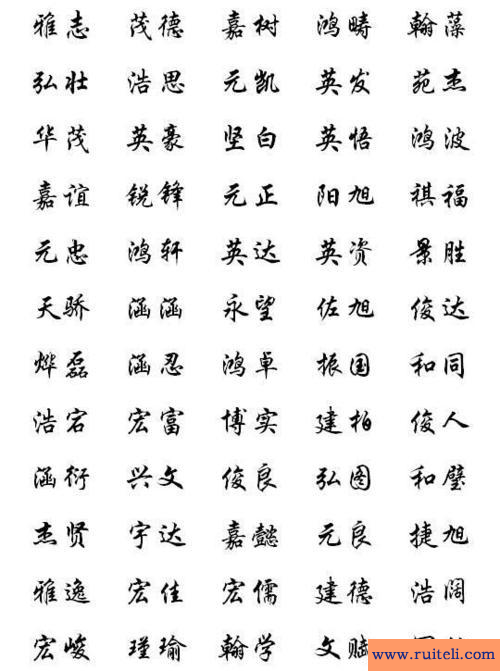 雅志 茂德 嘉树 鸿畴 翰藻
弘壮 浩思 元凯 英发 苑杰
华茂 英豪 坚白 英悟 鸿波
嘉谊 锐锋 元正 阳旭 祺福
元忠 鸿轩 英达 英资 景胜
天骄 涵涵 永望 佐旭 俊达
烨磊 涵忍 鸿卓 振国 和同
浩宕 宏富 博实 建柏 俊人
涵衍 兴文 俊良 弘图 和璧
杰贤 宇达 嘉懿 元良 捷旭
雅逸 宏佳 宏儒 建德 浩阔
宏峻 瑾瑜 翰学 文赋
www.ruiteli.com